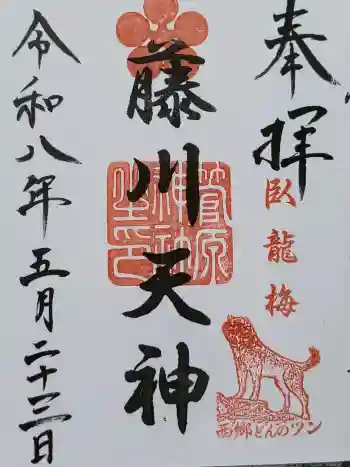 奉拝
臥龍梅
西郷どんのツン
藤川天神
菅原
神社
之印
令和八年五月二十三日